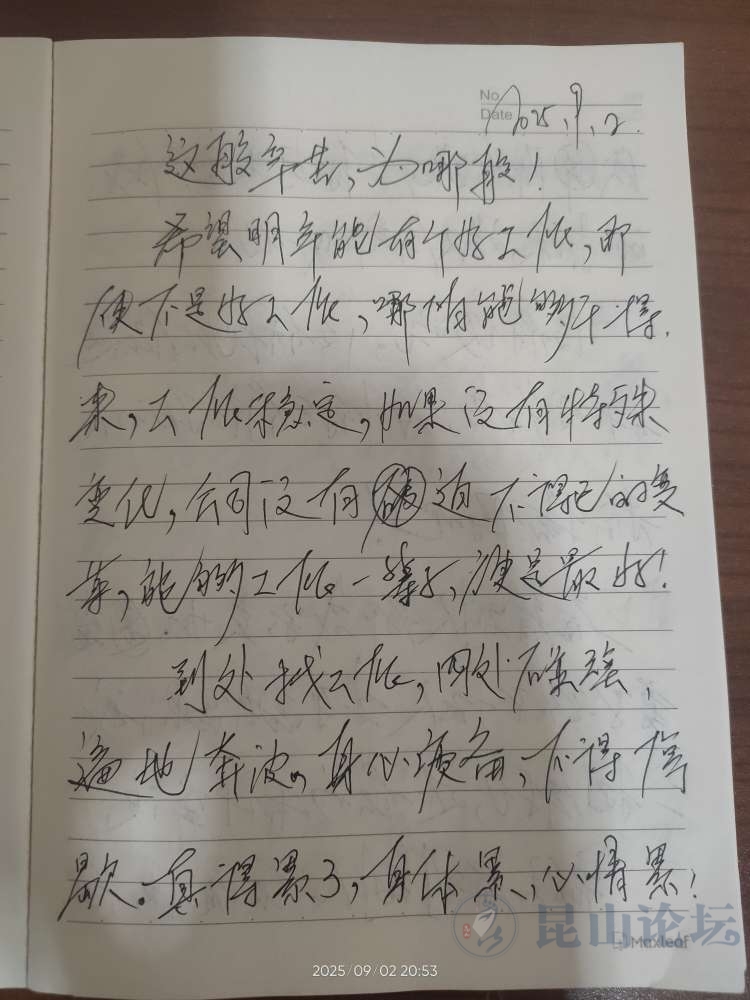 No
Date 2025.9.2.
这般辛苦，为哪般！
希望明年能有个好工作，即
便不是好工作，哪怕能够干得
来，工作稳定，如果没有特殊
变化，公司没有破迫不得已的变
革，能够工作一辈子，便是最好！
到处找工作，四处碰壁，
遍地奔波。身心疲备，不得停
歇。真得累了，身体累，心情累！
昆山论坛
Maxleaf
2025/09/02 20:53